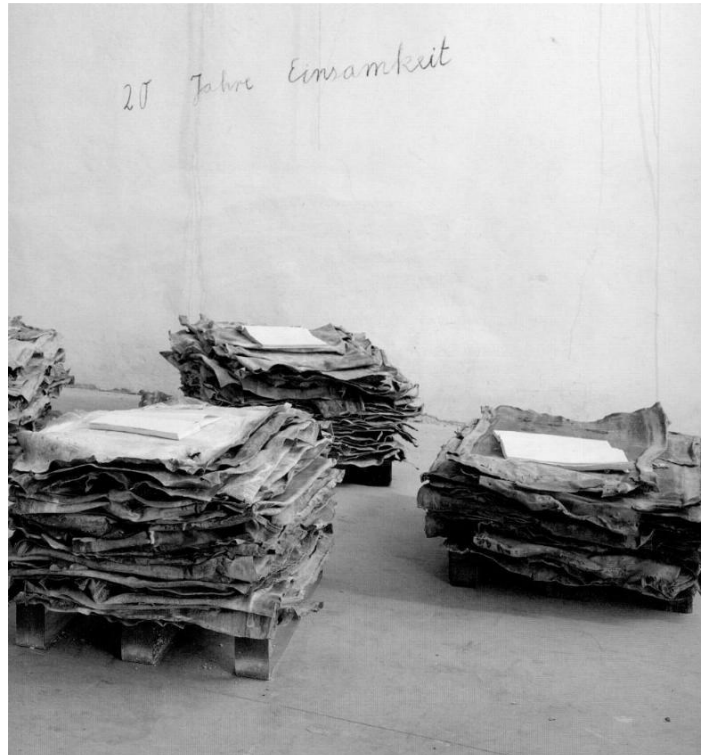 20 Jahre Einsamkeit